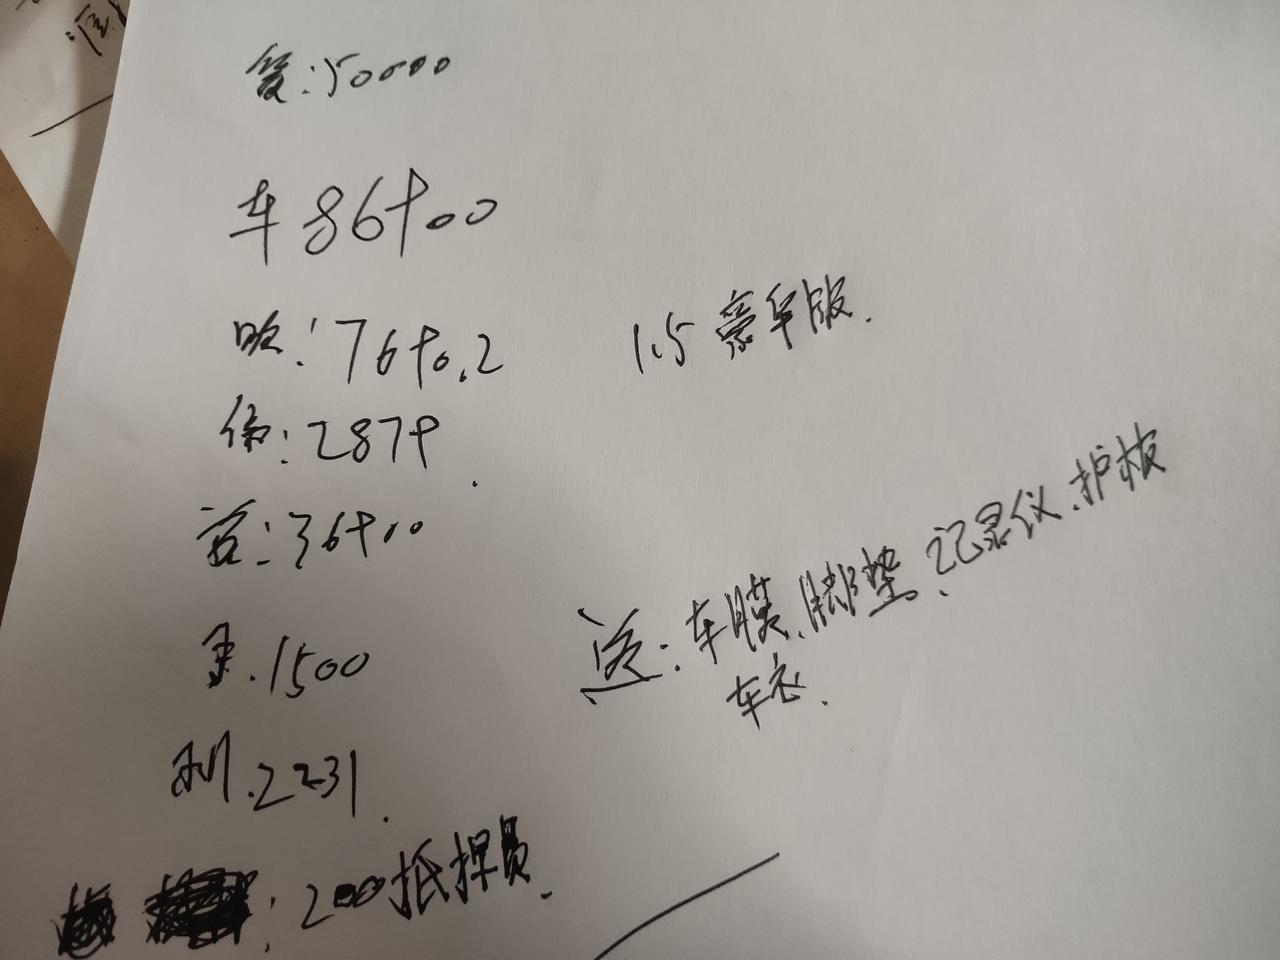 贷:50000
车86900
1.5豪华版.
:7690.2
保:2879.
首:36900
送:车膜、脚垫、记录仪、护板
车衣.
.1500
利.2231.
:200抵押员.